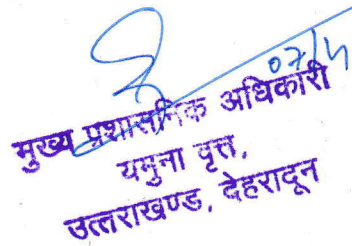 07/4
मुख्य प्रशासनिक अधिकारी
यमुना वृत्त,
उत्तराखण्ड, देहरादून